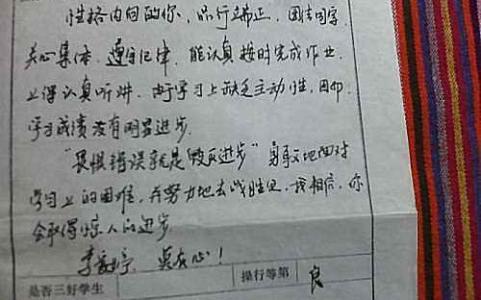 性格内向的你，品行端正，团结同学，
关心集体，遵守纪律，能认真按时完成作业，
上课认真听讲，由于学习上缺乏主动性，因而
学习成绩没有明显进步。
"畏惧错误就是毁灭进步"勇敢地面对
学习上的困难，并努力地去战胜它，我相信，你
会取得惊人的进步。
李 贵在心！
是否三好学生 操行等第 良